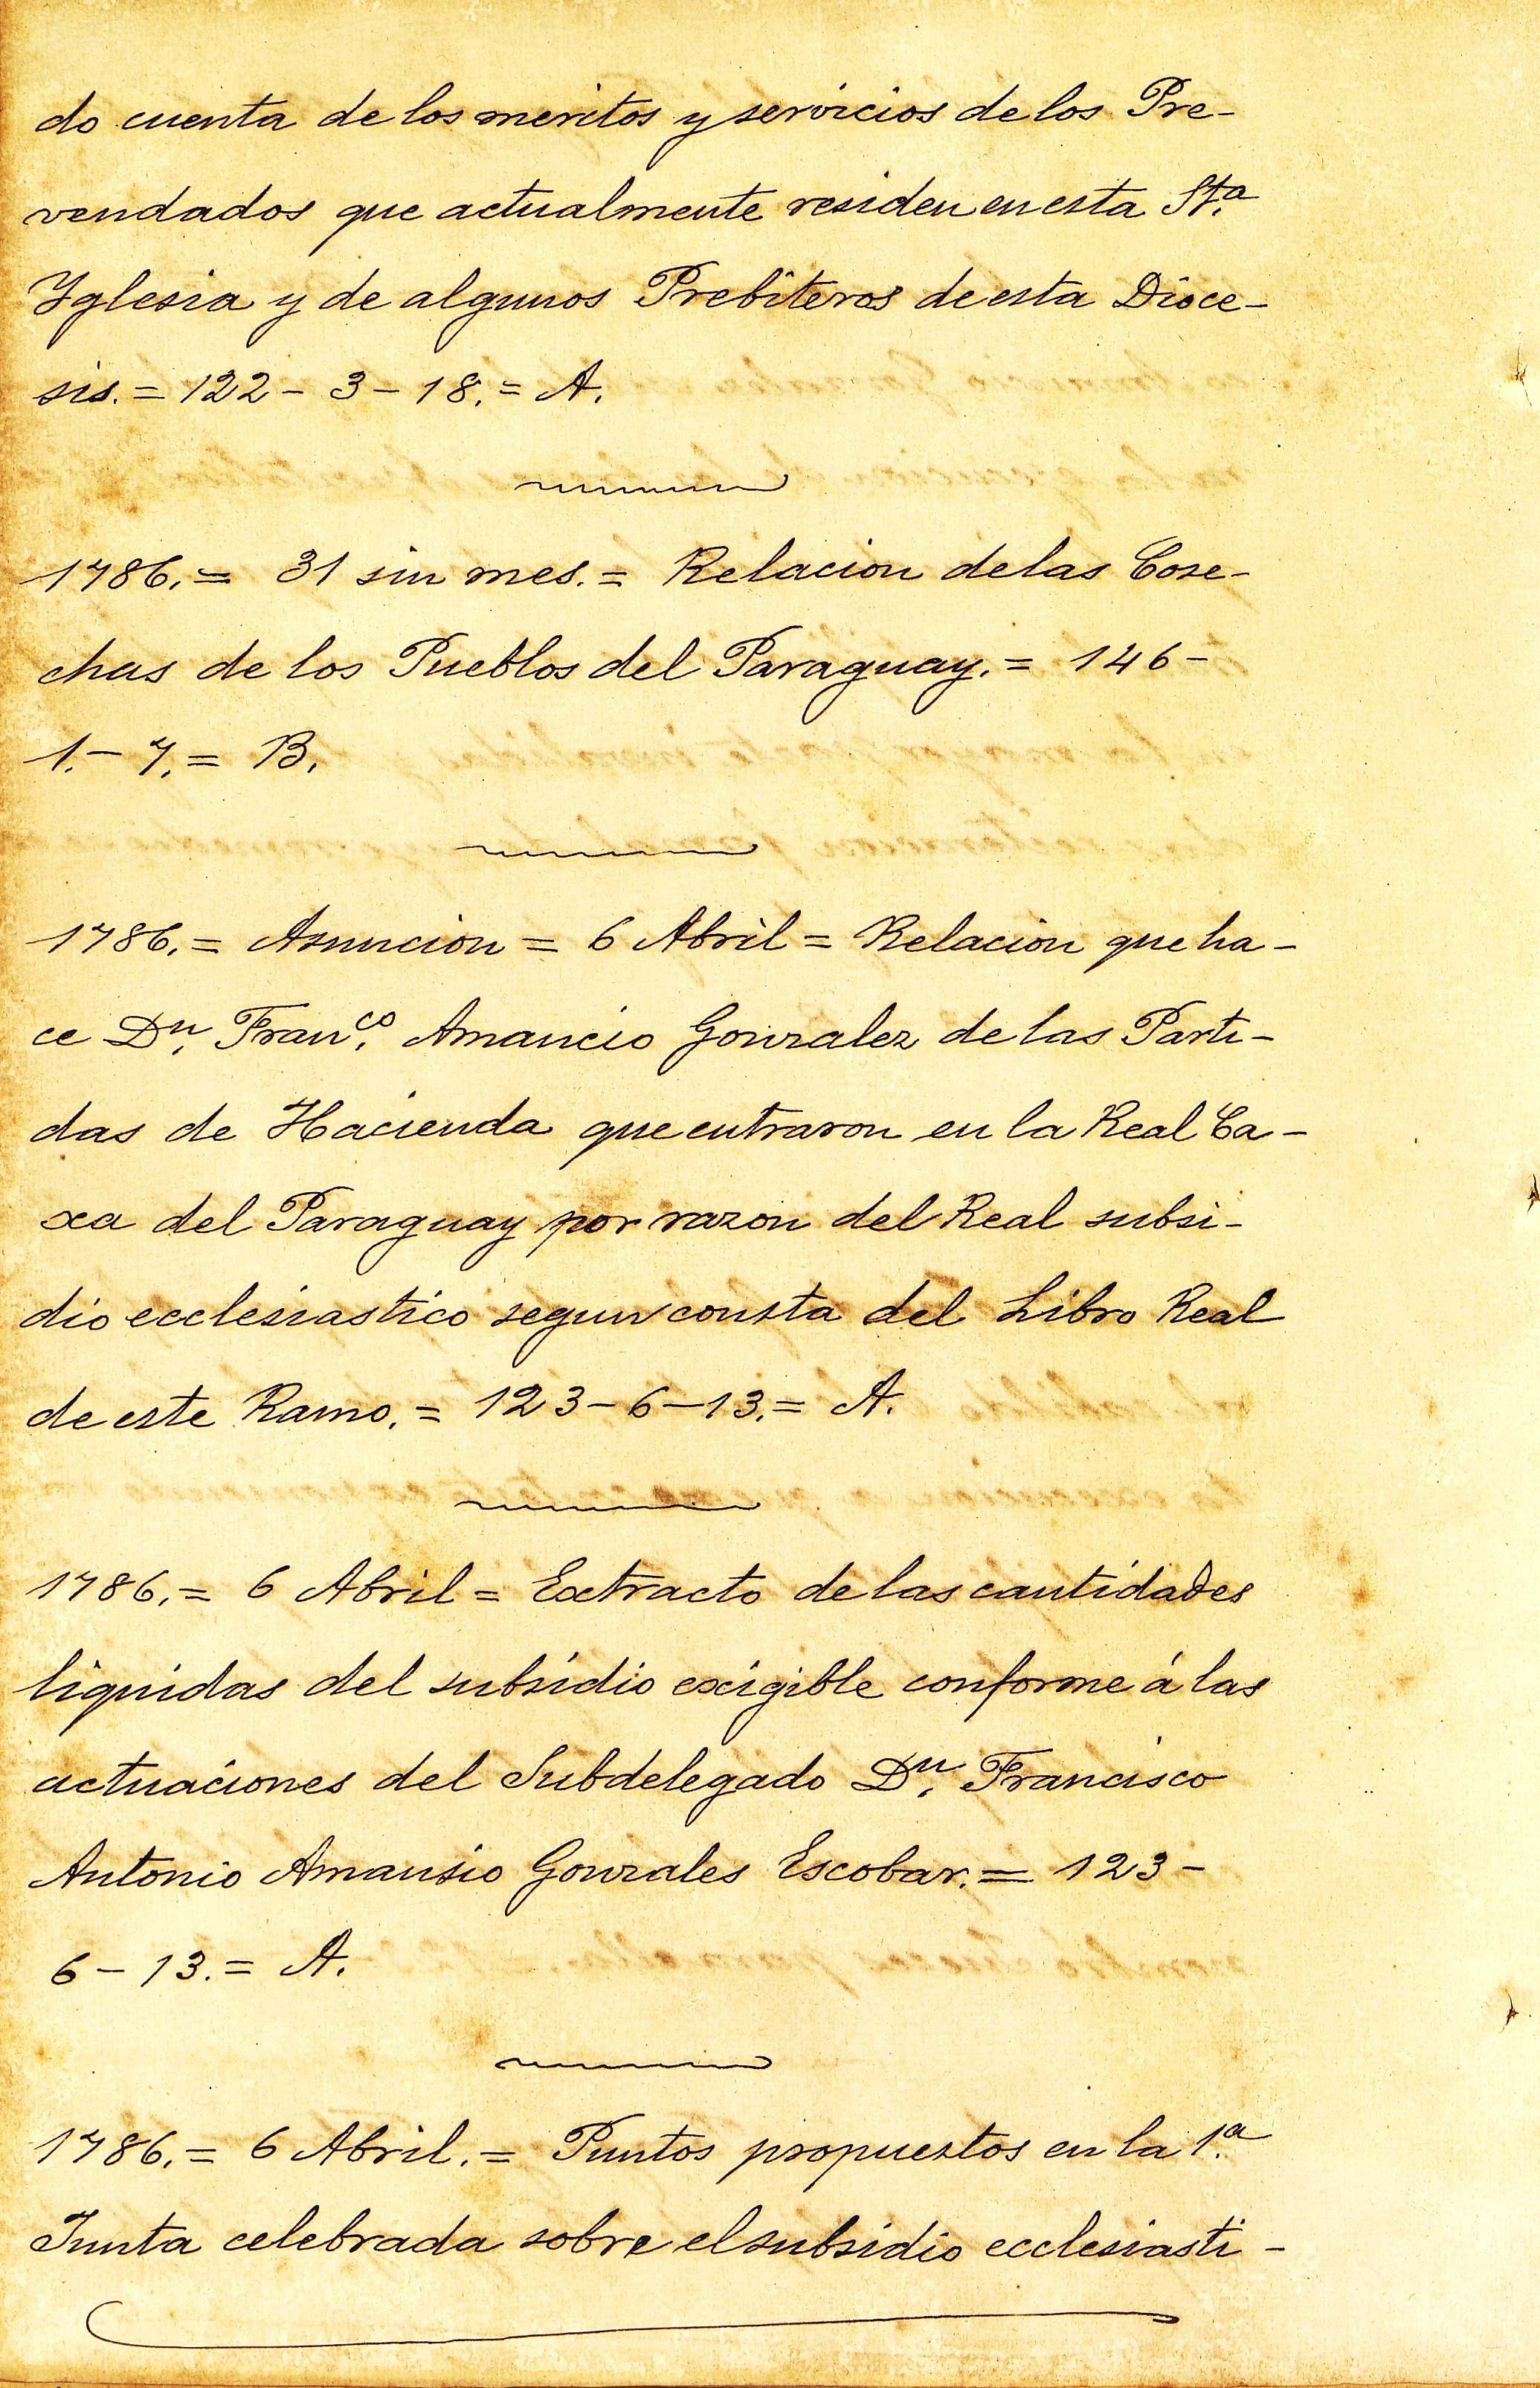 do cuenta de los meritos y servicios de los Pre-
vendados que actualmente residen en esta Sta.
Yglesia y de algunos Prebiteros de esta Dioce-
sis. = 122 - 3 - 18. = A.
1786. = 31 sin mes. = Relacion de las Cose-
chas de los Pueblos del Paraguay. = 146 -
1. - 7. = B.
1786. = Asuncion = 6 Abril = Relacion que ha-
ce Dn. Franco. Amancio Gonzalez de las Parti-
das de Hacienda que entraron en la Real Ca-
xa del Paraguay por razon del Real subsi-
dio ecclesiastico segun consta del Libro Real
de este Ramo. = 123 - 6 - 13. = A.
1786. = 6 Abril = Extracto de las cantidades
liquidas del subsidio exigible conforme á las
actuaciones del Subdelegado Dn. Francisco
Antonio Amansio Gonzales Escobar. = 123 -
6 - 13. = A.
1786. = 6 Abril. = Puntos propuestos en la 1.a
Junta celebrada sobre el subsidio ecclesiasti-